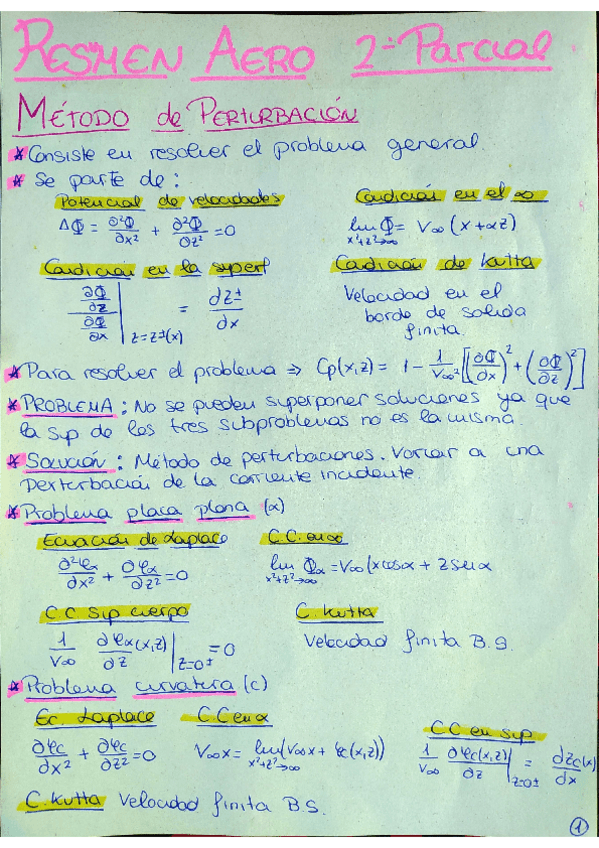 RESMEN AERO 2º Parcial
MÉTODO de PERTURBACIÓN
* Consiste en resolver el problema general.
* Se parte de:
Potencial de velocidades Condición en el ∞
ΔΦ = ∂²Φ/∂x² + ∂²Φ/∂z² = 0 lim x²+z²→∞ Φ = V∞ (x+αz)
Condición en la superf Condición de kutta
∂Φ/∂z / ∂Φ/∂x | z=z±(x) = dz±/dx Velocidad en el
borde de salida
finita.
* Para resolver el problema ⇒ Cp(x,z) = 1 - 1/V∞² [(∂Φ/∂x)² + (∂Φ/∂z)²]
* PROBLEMA: No se pueden superponer soluciones ya que
la sup de los tres subproblemas no es la misma.
* Solución: Método de perturbaciones. Variar a una
Perturbación de la corriente incidente.
* Problema placa plana (α)
Ecuación de Laplace C.C. en ∞
∂²φα/∂x² + ∂φα/∂z² = 0 lim x²+z²→∞ Φα = V∞ (x cosα + z senα
C.C Sup cuerpo C. Kutta
1/V∞ ∂φα(x,z)/∂z | z=0± = 0 Velocidad finita B.S.
* Problema curvatura (c)
Ec. Laplace C.C en ∞ CC en sup
∂φc/∂x² + ∂φc/∂z² = 0 V∞x = lim x²+z²→∞ (V∞x + φc(x,z)) 1/V∞ ∂φc(x,z)/∂z | z=0± = dzc(x)/dx
C. Kutta Velocidad finita B.S.
1